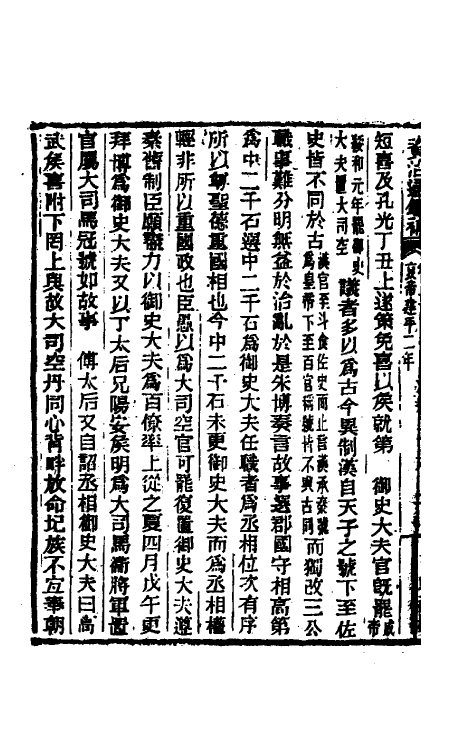 資治通鑑補
哀帝建平二年
短喜及孔光丁丑上遂策免喜以侯就第　御史大夫官旣罷成帝
綏和元年罷御史大夫置大司空議者多以為古今異制漢自天子之號下至佐
史皆不同於古漢官至斗食佐史而止言漢承秦號為皇帝下至百官稱號皆不與古同而獨改三公
職事難分明無益於治亂於是朱博奏言故事選郡國守相高第
為中二千石選中二千石為御史大夫任職者為丞相位次有序
所以尊聖德重國相也今中二千石未更御史大夫而為丞相權
輕非所以重國政也臣愚以為大司空官可罷復置御史大夫遵
秦舊制臣願盡力以御史大夫為百僚率上從之夏四月戊午更
拜博為御史大夫又以丁太后兄陽安侯明為大司馬衞將軍置
官屬大司馬冠號如故事　傅太后又自詔丞相御史大夫曰高
武侯喜附下罔上與故大司空丹同心背畔放命圮族不宜奉朝